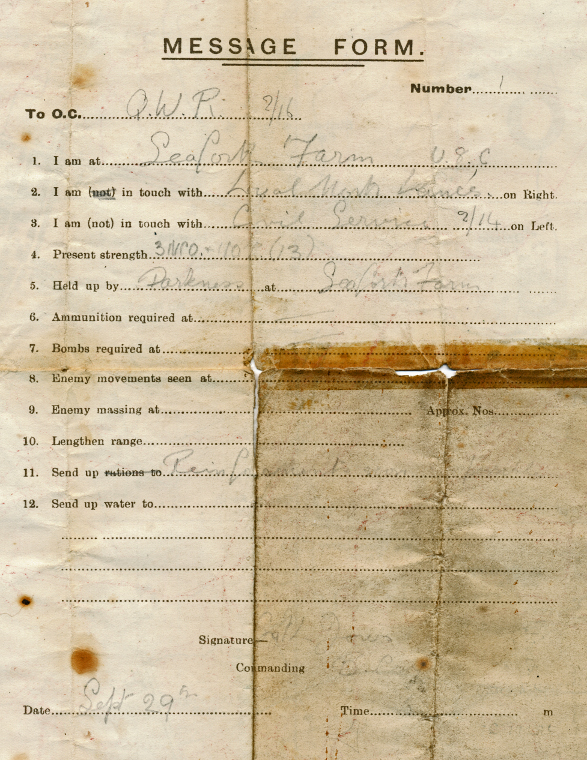 MESSAGE FORM.
Number 1
To O.C. Q.W.R. 2/16
1. I am at Seafork Farm U.8.C
2. I am (not) in touch with on Right.
3. I am (not) in touch with Civil Service 2/14 on Left.
4. Present strength 3 NCO. + 10 (13)
5. Held up by Darkness at Seafork Farm
6. Ammunition required at
7. Bombs required at
8. Enemy movements seen at
9. Enemy massing at Approx. Nos.
10. Lengthen range
11. Send up rations to Reinforcements
12. Send up water to
Signature
Commanding
Date Sept 29th Time m